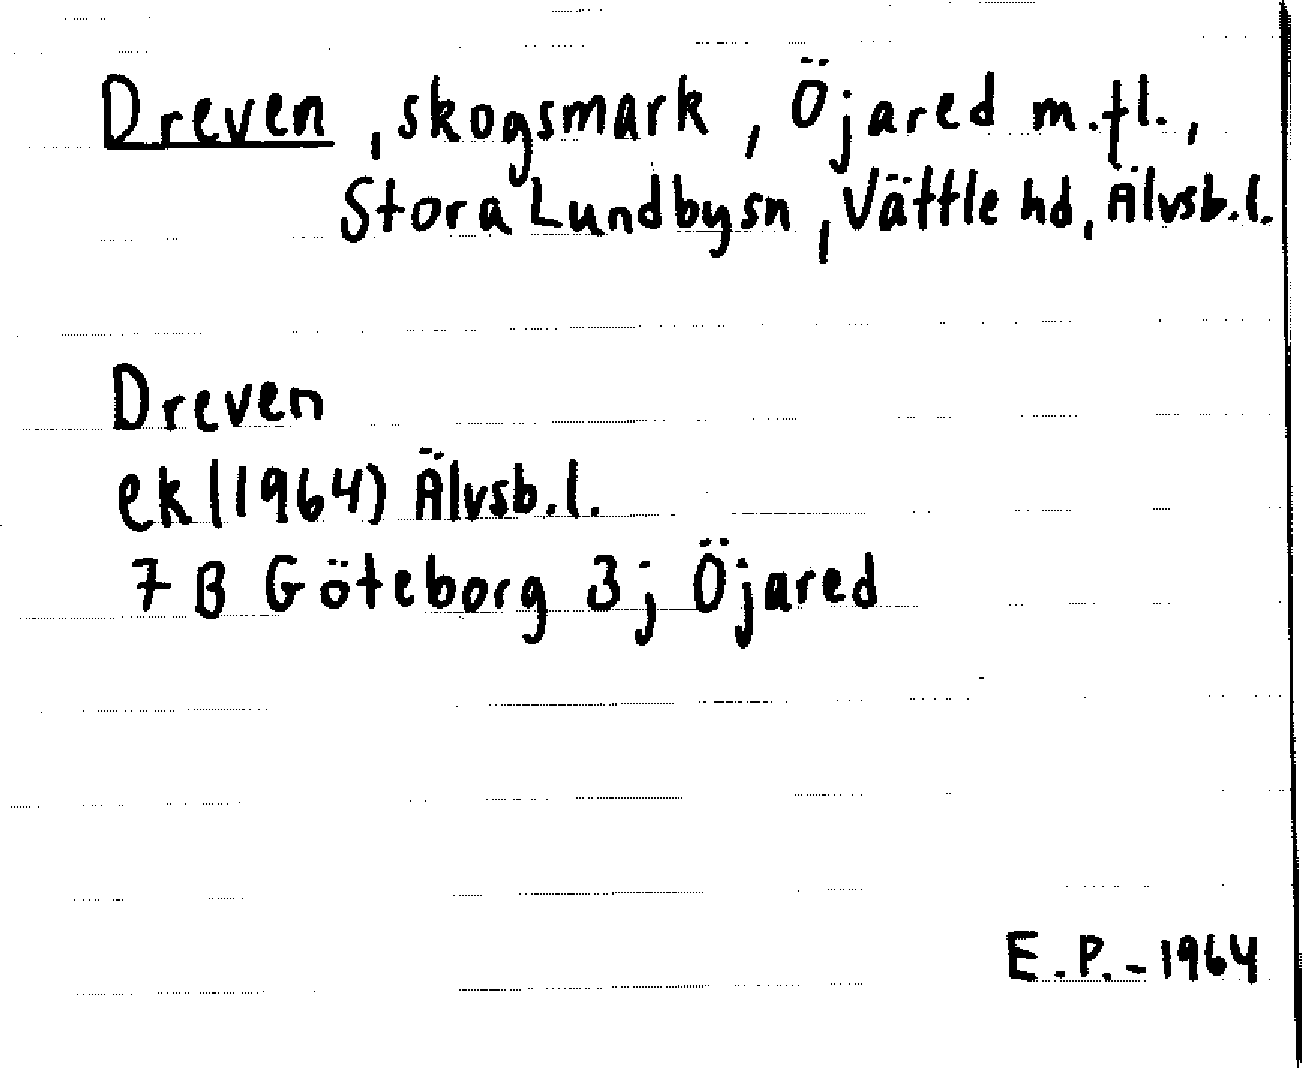 Dreven, skogsmark, Öjared m.fl.,
Stora Lundbysn, Vättle hd, Älvsb.l.
Dreven
ek (1964) Älvsb.l.
7 B Göteborg 3j Öjared
E.P.-1964